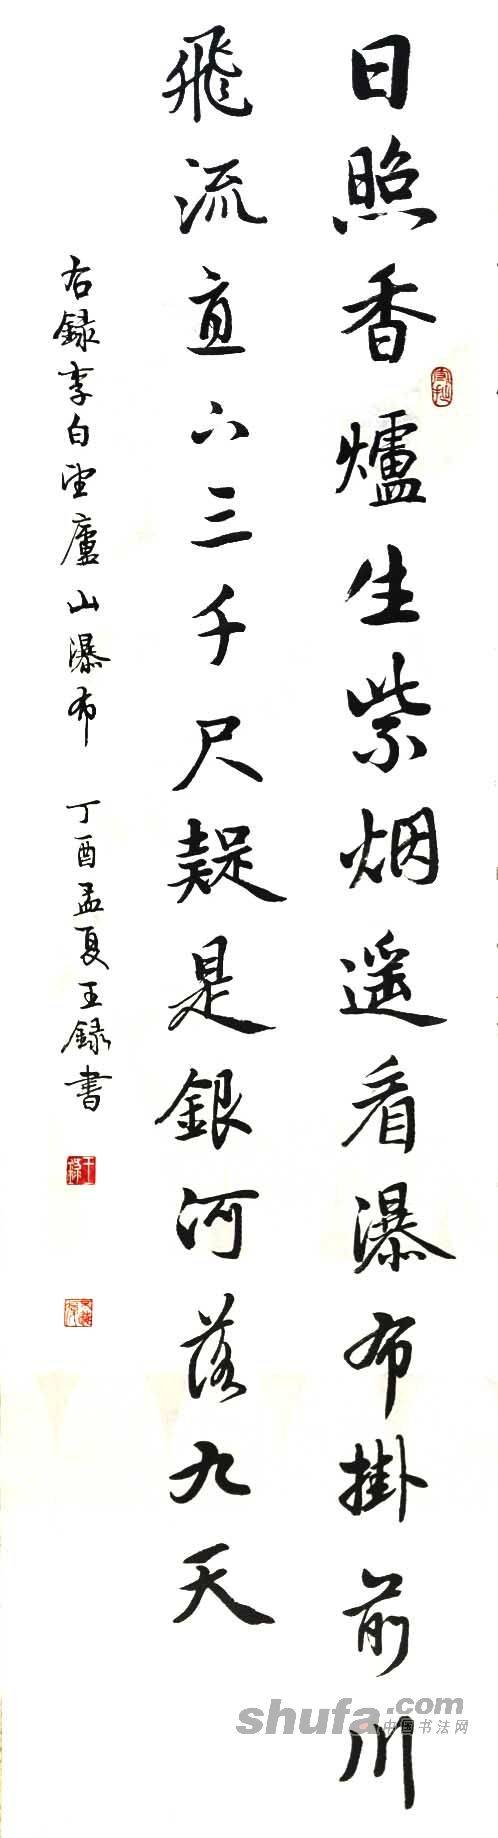 日照香爐生紫烟遥看瀑布掛前川
飛流直下三千尺疑是銀河落九天
右録李白望廬山瀑布 丁酉孟夏王録書
shufa.com
中国书法网